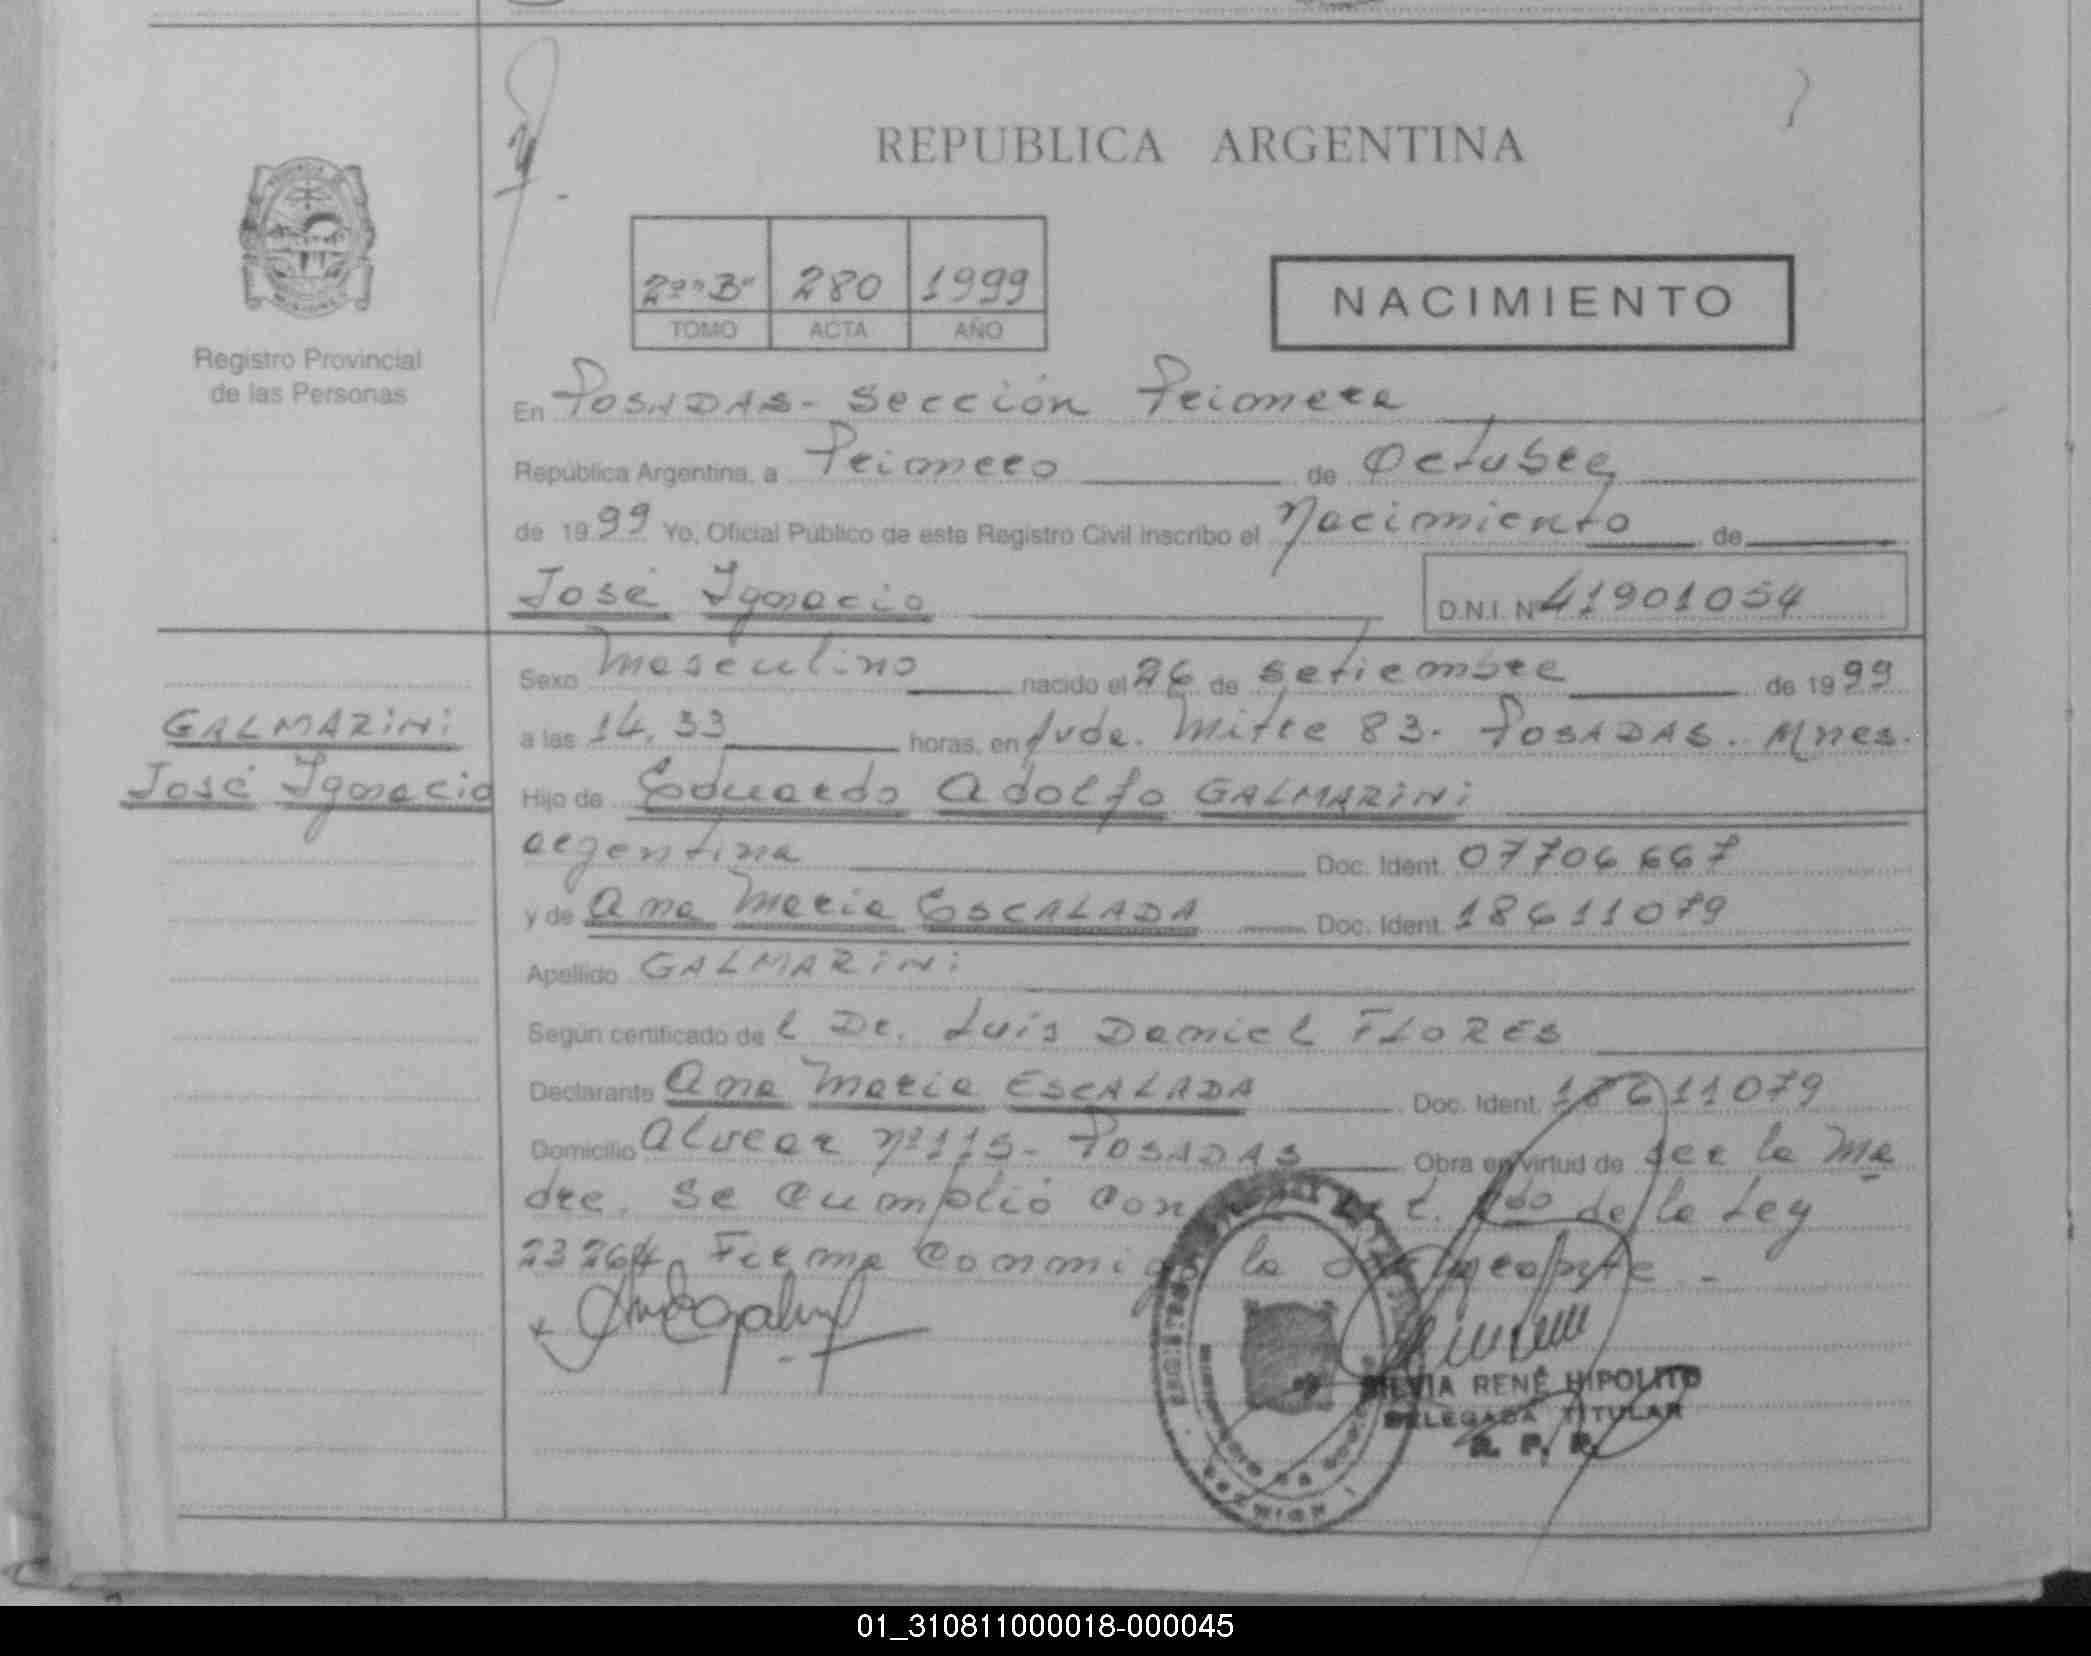 REPUBLICA ARGENTINA
2º "B" 280 1999
TOMO ACTA AÑO
NACIMIENTO
Registro Provincial
de las Personas
En POSADAS - Sección Primera
República Argentina, a Primero de Octubre
de 1999 Yo, Oficial Público de este Registro Civil inscribo el Nacimiento de
José Ignacio D.N.I. Nº 41901054
Sexo Masculino nacido el 26 de Setiembre de 1999
GALMARINI
a las 14,33 horas, en Avda. Mitre 83. POSADAS. Mnes.
José Ignacio
Hijo de Eduardo Adolfo GALMARINI
argentina Doc. Ident. 07706667
y de Ana Maria ESCALADA Doc. Ident. 18611079
Apellido GALMARINI
Según certificado del Dr. Luis Daniel FLORES
Declarante Ana Maria ESCALADA Doc. Ident. 18611079
Domicilio Alvear nº 115 - POSADAS Obra en virtud de ser la Ma
dre. Se cumplió con Art. 2do de la Ley
23264. Firma conmigo la
SILVIA RENÉ HIPOLITO
DELEGADA TITULAR
R. P. P.
01_310811000018-000045